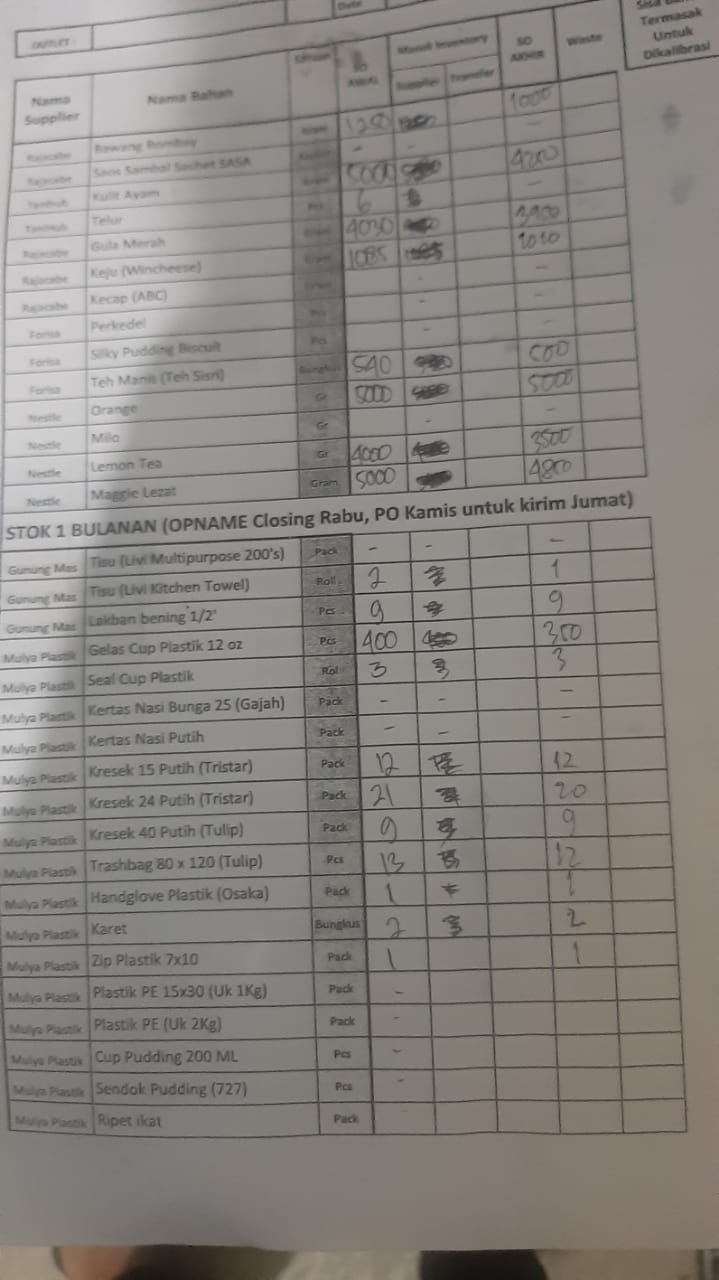 Date
Sisa
Termasak
Untuk
Dikalibrasi
OUTLET :
Nama Supplier Nama Bahan Satuan SO AWAL Masuk Inventory Supplier Transfer SO AKHIR Waste
Rajacabe Bawang Bombay Gram 1250 1000
Rajacabe Saos Sambal Sachet SASA - - -
Tambuh Kulit Ayam Gram 5000 4200
Tambuh Telur Pcs 6 -
Rajacabe Gula Merah Gram 4030 3900
Rajacabe Keju (Wincheese) Gram 1085 1010
Rajacabe Kecap (ABC) - -
Forisa Perkedel Pcs - -
Forisa Silky Pudding Biscuit Pcs - -
Forisa Teh Manis (Teh Sisri) Bungkus 540 500
Nestle Orange Gr 5000 5000
Nestle Milo Gr - -
Nestle Lemon Tea Gr 4000 3500
Nestle Maggie Lezat Gram 5000 4800
STOK 1 BULANAN (OPNAME Closing Rabu, PO Kamis untuk kirim Jumat)
Gunung Mas Tisu (Livi Multipurpose 200's) Pack - - -
Gunung Mas Tisu (Livi Kitchen Towel) Roll 2 1
Gunung Mas Lakban bening 1/2' Pcs 9 9
Mulya Plastik Gelas Cup Plastik 12 oz Pcs 400 350
Mulya Plastik Seal Cup Plastik Rol 3 3
Mulya Plastik Kertas Nasi Bunga 25 (Gajah) Pack - - -
Mulya Plastik Kertas Nasi Putih Pack - - -
Mulya Plastik Kresek 15 Putih (Tristar) Pack 12 12
Mulya Plastik Kresek 24 Putih (Tristar) Pack 21 20
Mulya Plastik Kresek 40 Putih (Tulip) Pack 9 9
Mulya Plastik Trashbag 80 x 120 (Tulip) Pcs 13 12
Mulya Plastik Handglove Plastik (Osaka) Pack 1 1
Mulya Plastik Karet Bungkus 2 2
Mulya Plastik Zip Plastik 7x10 Pack 1 1
Mulya Plastik Plastik PE 15x30 (Uk 1Kg) Pack -
Mulya Plastik Plastik PE (Uk 2Kg) Pack -
Mulya Plastik Cup Pudding 200 ML Pcs -
Mulya Plastik Sendok Pudding (727) Pcs -
Mulya Plastik Ripet ikat Pack